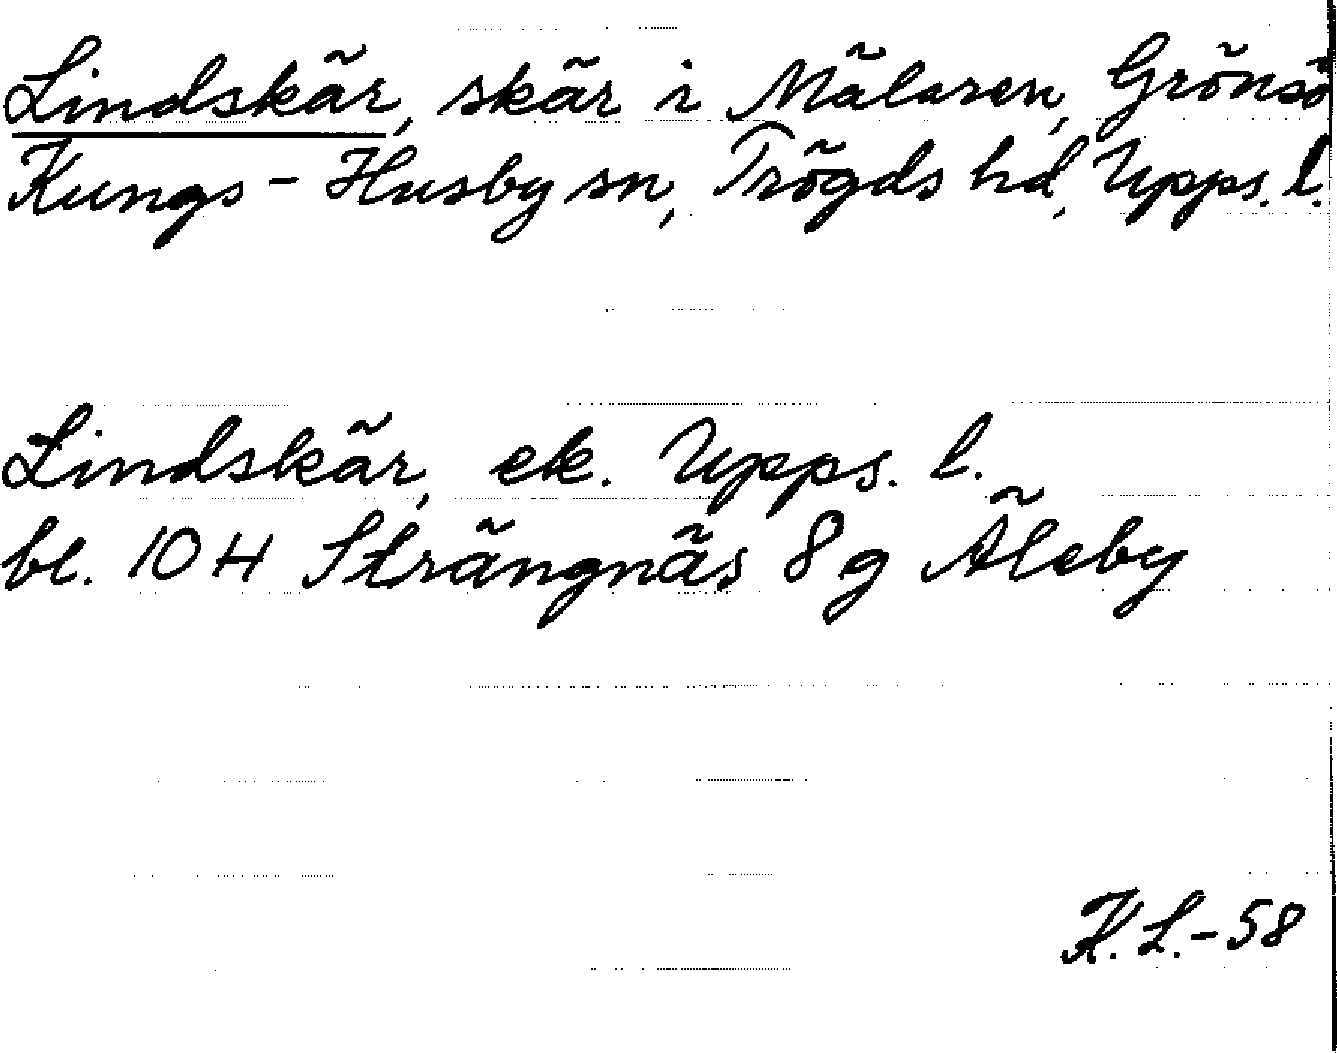 Lindskär, skär i Mälaren, Grönsö
Kungs-Husby sn, Trögds hd, Upps. l.
Lindskär, ek. Upps. l.
bl. 10 H Strängnäs 8 g Äleby
K. L. - 58